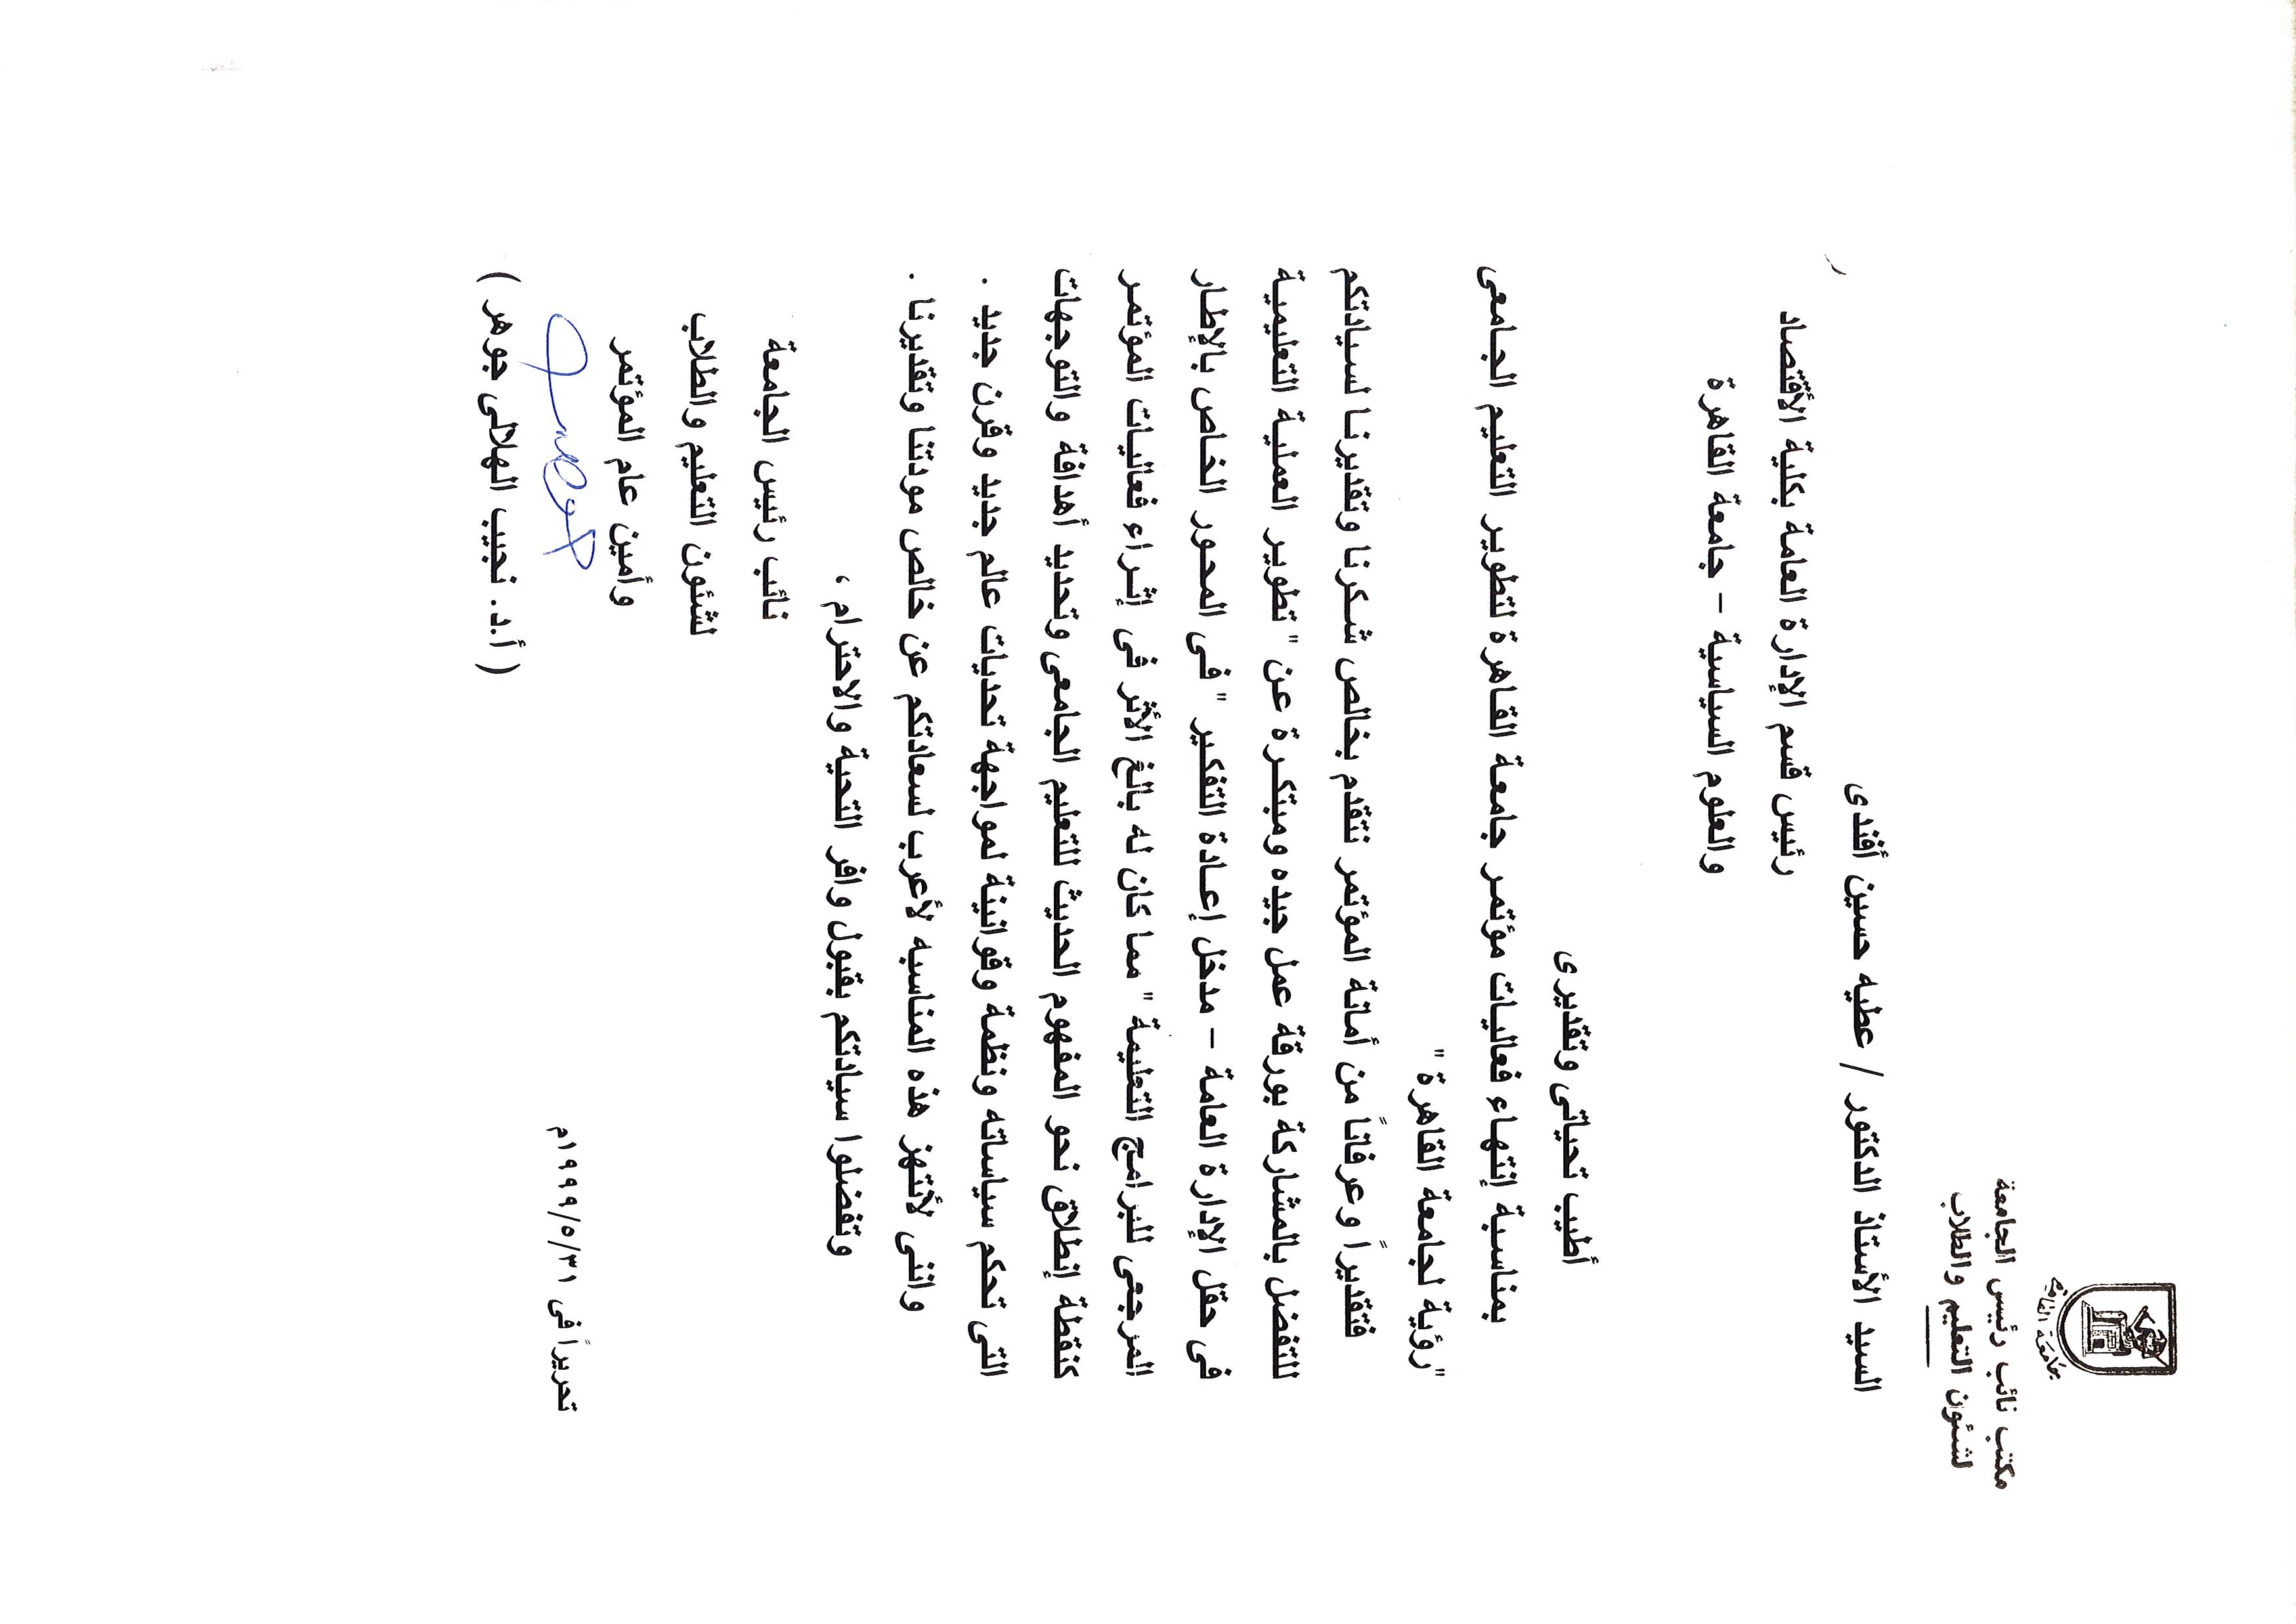 جامعة القاهرة
مكتب نائب رئيس الجامعة
لشئون التعليم والطلاب
السيد الأستاذ الدكتور / عطيه حسين أفندى
رئيس قسم الإدارة العامة بكلية الأقتصاد
والعلوم السياسية – جامعة القاهرة
أطيب تحياتى وتقديرى
بمناسبة إنتهاء فعاليات مؤتمر جامعة القاهرة لتطوير التعليم الجامعى
"رؤية لجامعة القاهرة"
فتقديراً وعرفاناً من أمانة المؤتمر نتقدم بخالص شكرنا وتقديرنا لسيادتكم
للتفضل بالمشاركة بورقة عمل جيده ومبتكرة عن "تطوير العملية التعليمية
فى حقل الإدارة العامة – مدخل إعادة التفكير " فى المحور الخاص بالإطار
المرجعى للبرامج التعليمة " مما كان له بالغ الأثر فى إثراء فعاليات المؤتمر
كنقطة إنطلاق نحو المفهوم الحديث للتعليم الجامعى وتحديد أهدافة والتوجهات
التى تحكم سياساته ونظمة وقوانينة لمواجهة تحديات عالم جديد وقرن جديد .
واننى لأنتهز هذه المناسبه لأعرب لسعادتكم عن خالص مودتنا وتقديرنا .
وتفضلوا سيادتكم بقبول وافر التحية والاحترام ،
نائب رئيس الجامعة
لشئون التعليم والطلاب
وأمين عام المؤتمر
تحريراً فى ١٩٩٩/٥/٣١م
( أ.د. نجيب الهلالى جوهر )